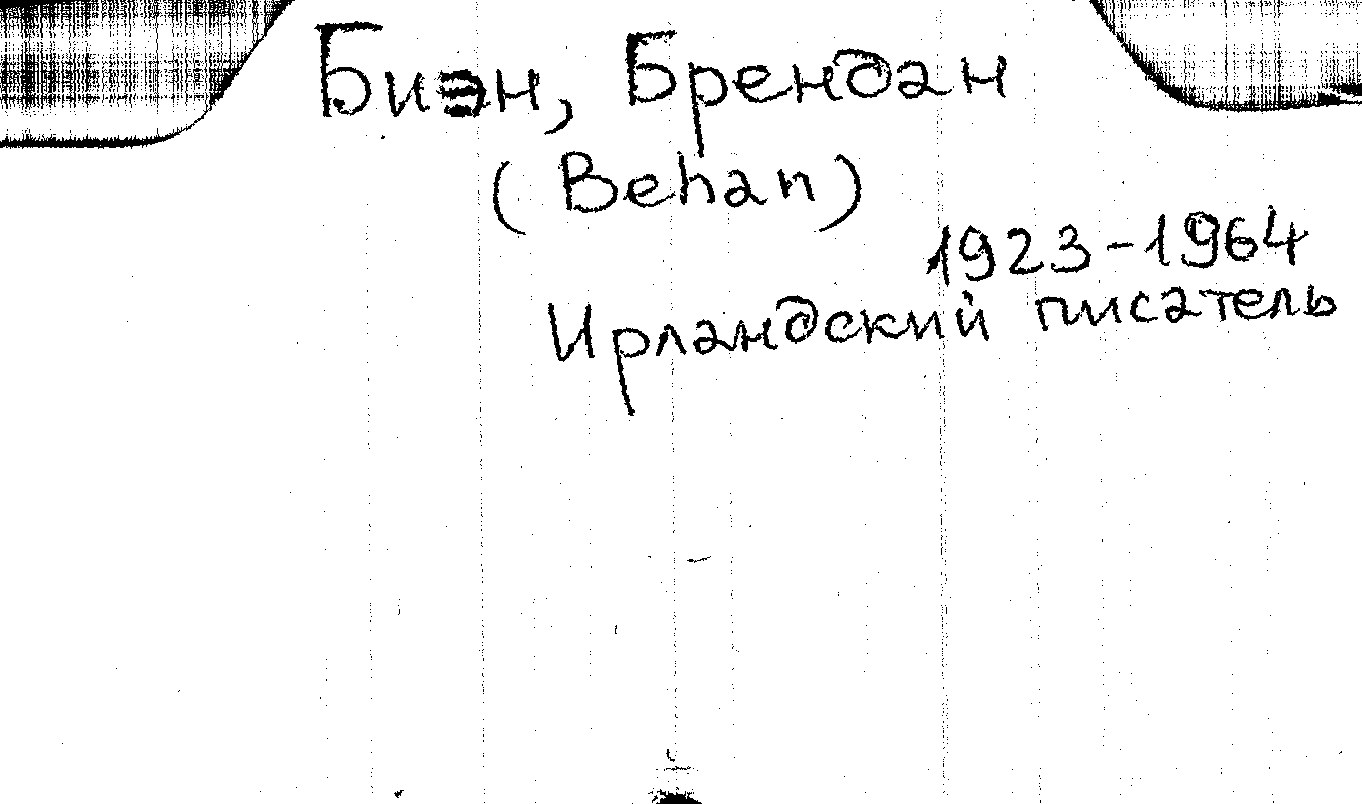 Биэн, Брендан
(Behan)
1923-1964
Ирландский писатель